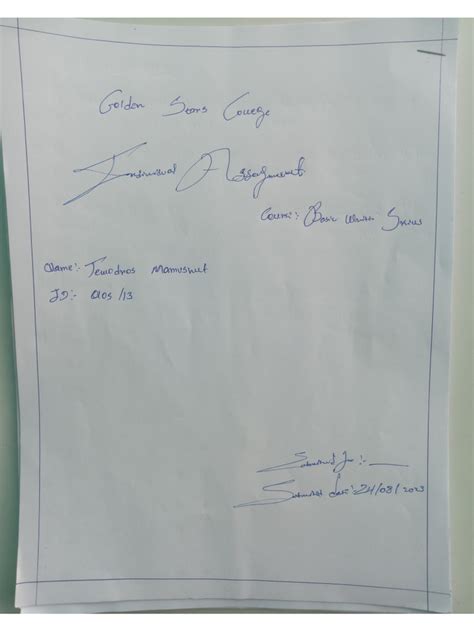 Golden Stars College
Individual Assignment
Course:- Basic Writing Skills
Name:- Tewodros
ID:- /13
Submitted To:-
Submitted date:- 24/08/2023